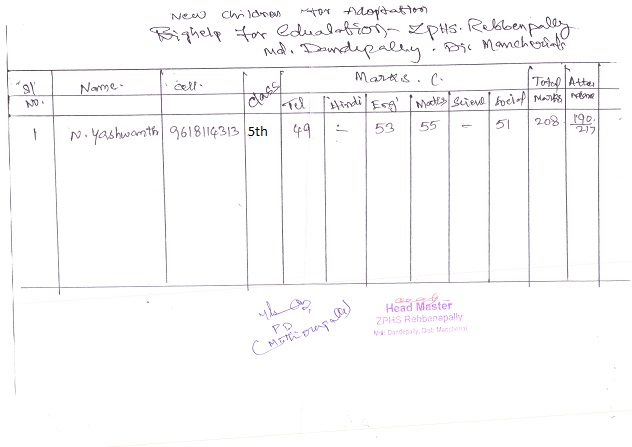 New Children For Adoptation
Bighelp For Edualation - ZPHS. Rebbenpally
Md. Dandepally. Dis: Mancherials
Sl No. Name. Cell. class Marks. C. Total Marks Atten
Tel Hindi Eng' Maths Sciene Social
1 N. Yashwanth 9618114313 5th 49 - 53 55 - 51 208 190/217
P.D
Head Master
ZPHS Rebbenapally
Mdl: Dandepally, Dist: Mancherial